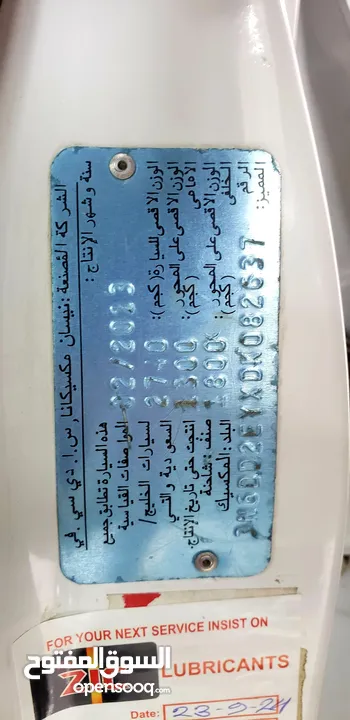 الشركة المصنعة: نيسان مكسيكانا, س.ا. دي سي في
سنة وشهر الإنتاج: 02/2013
هذه السيارة تطابق جميع
المواصفات القياسية
الوزن الاقصى للسيارة (كجم): 2740
لسيارات الخليج/
الوزن الاقصى على المحور
الأمامى (كجم): 1300
السعودية والتي
انتجت حتى تاريخ الإنتاج.
الوزن الاقصى على المحور
الخلفى (كجم): 1800
صنف: شاحنة
الرقم
المميز:
البلد: المكسيك
FOR YOUR NEXT SERVICE INSIST ON
LUBRICANTS
السوق المفتوح
opensooq.com
Date: 23-9-24